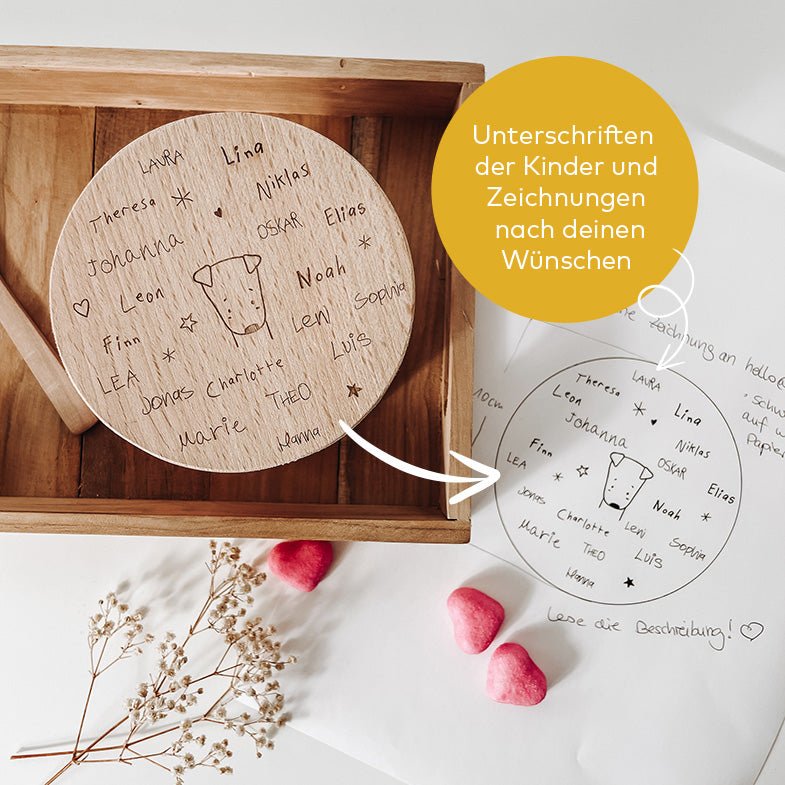 Unterschriften
der Kinder und
Zeichnungen
nach deinen
Wünschen
LAURA Lina
Theresa Niklas
OSKAR Elias
Johanna
Leon Noah
Sophia
Finn Leni
LUIS
LEA Jonas Charlotte
THEO
Marie
Hanna
Zeichnung an hello@
10cm
auf
Papier
Theresa LAURA
Leon Lina
Johanna
Niklas
Finn OSKAR
LEA Elias
Noah
Jonas Charlotte Leni
Sophia
Marie THEO LUIS
Hanna
Lese die Beschreibung!